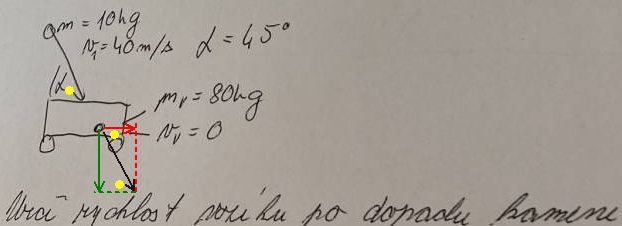 m = 10kg
v₁ = 40m/s
α = 45°
α
mᵥ = 80kg
vᵥ = 0
Urči rychlost vozíku po dopadu kamene